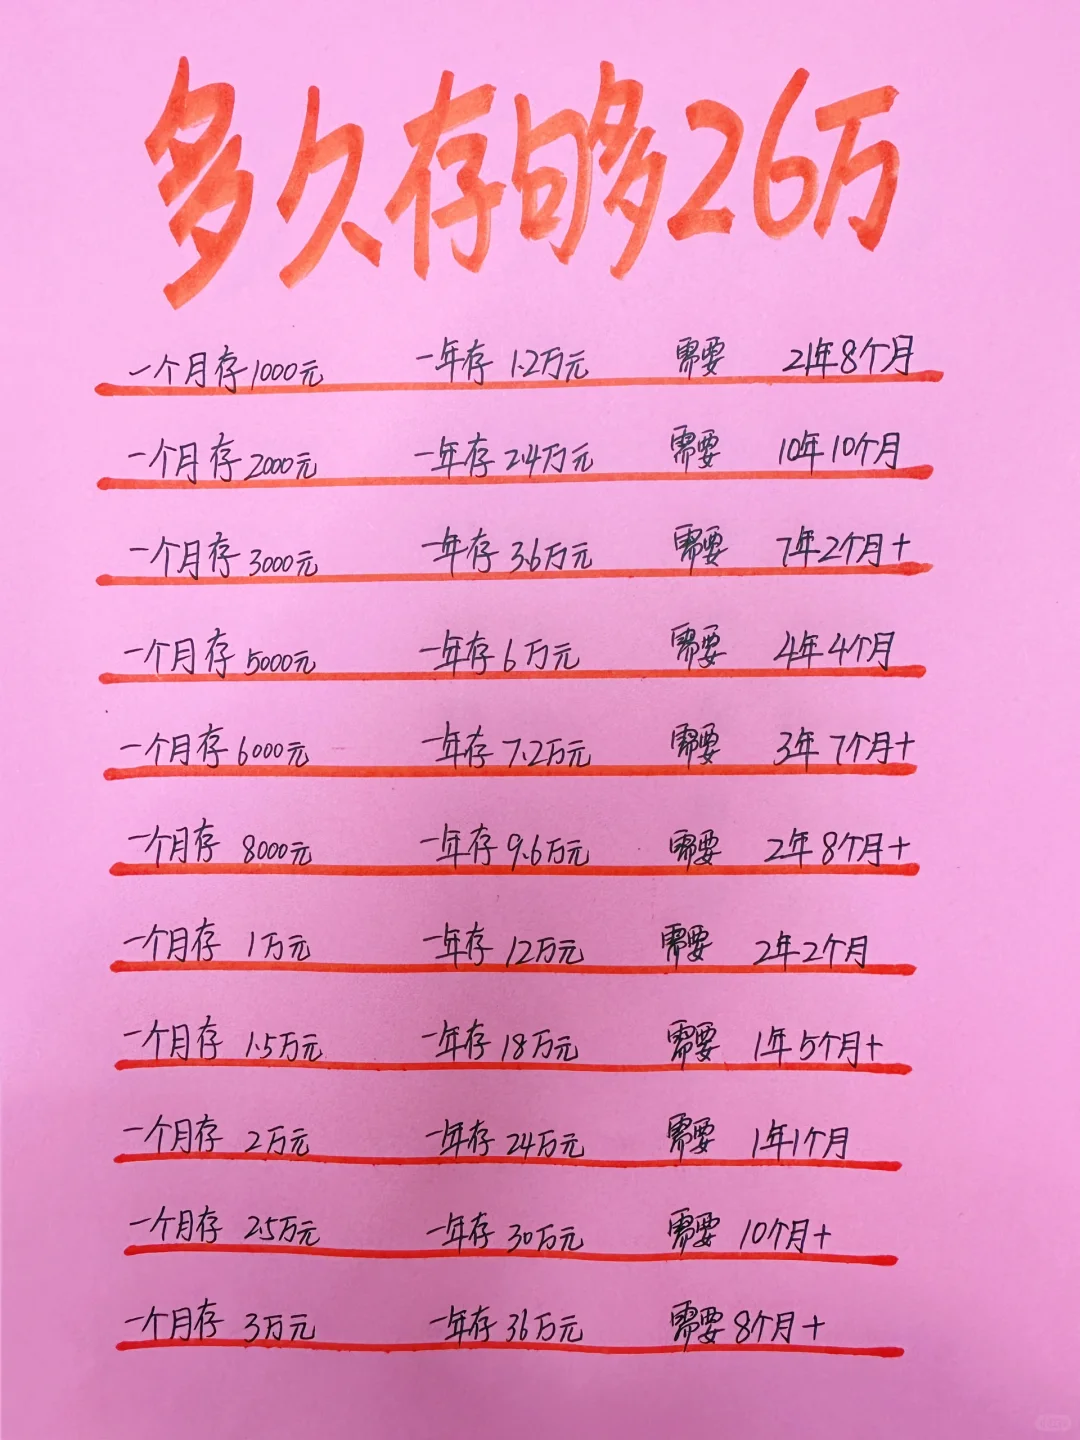 多久存够26万
一个月存1000元 一年存1.2万元 需要 21年8个月
一个月存2000元 一年存2.4万元 需要 10年10个月
一个月存3000元 一年存3.6万元 需要 7年2个月+
一个月存5000元 一年存6万元 需要 4年4个月
一个月存6000元 一年存7.2万元 需要 3年7个月+
一个月存8000元 一年存9.6万元 需要 2年8个月+
一个月存1万元 一年存12万元 需要 2年2个月
一个月存1.5万元 一年存18万元 需要 1年5个月+
一个月存2万元 一年存24万元 需要 1年1个月
一个月存2.5万元 一年存30万元 需要 10个月+
一个月存3万元 一年存36万元 需要 8个月+